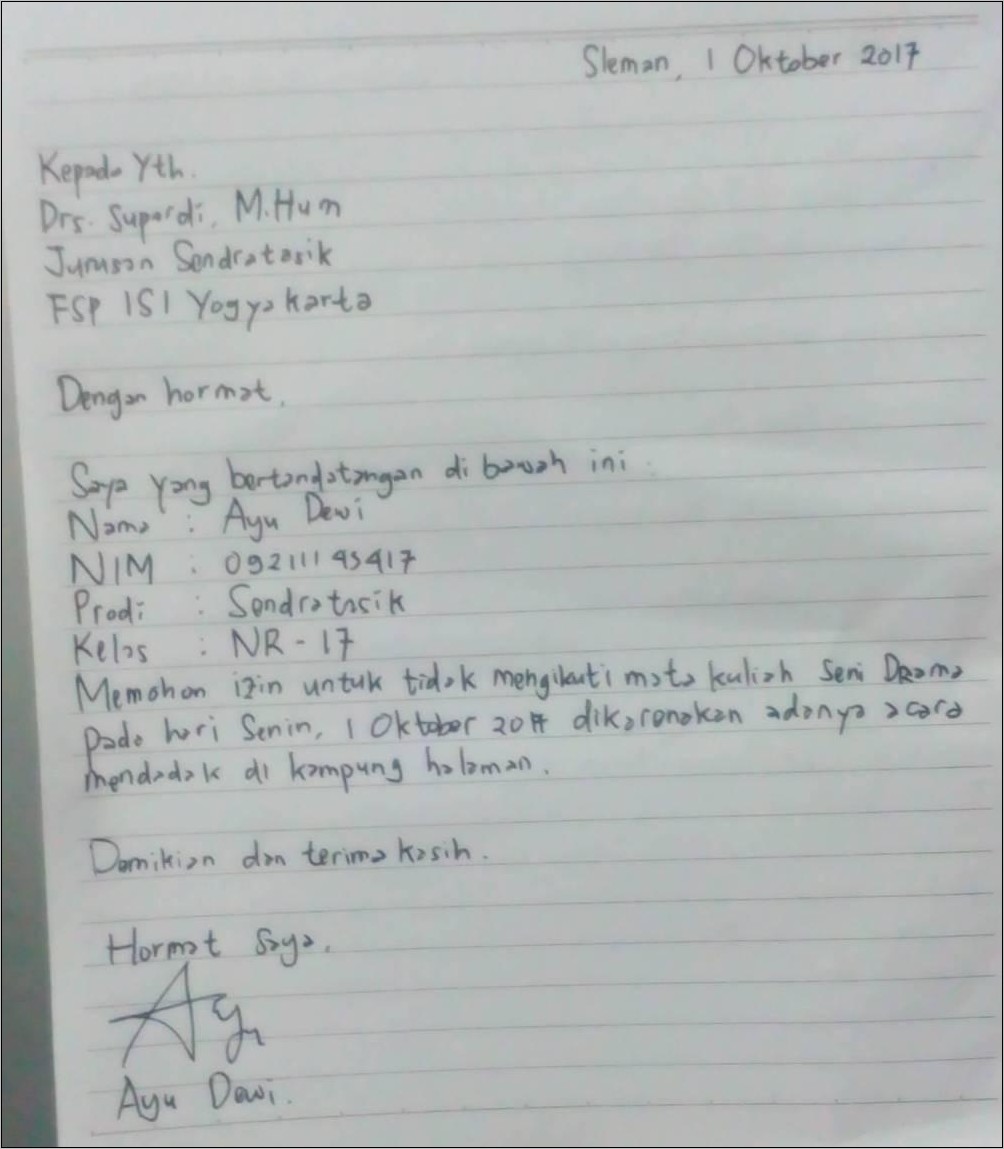 Sleman, 1 Oktober 2017
Kepada Yth.
Drs. Supardi, M.Hum
Jurusan Sendratasik
FSP ISI Yogyakarta
Dengan hormat,
Saya yang bertandatangan di bawah ini :
Nama : Ayu Dewi
NIM : 09211145417
Prodi : Sendratasik
Kelas : NR - 17
Memohon izin untuk tidak mengikuti mata kuliah Seni Drama
pada hari Senin, 1 Oktober 2017 dikarenakan adanya acara
mendadak di kampung halaman.
Demikian dan terima kasih.
Hormat Saya,
Ay
Ayu Dewi.